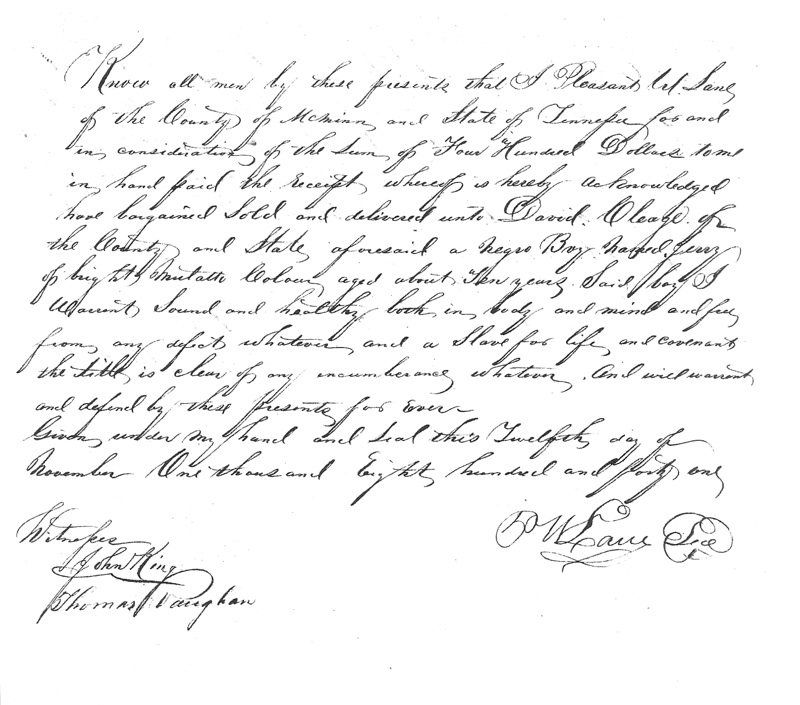 Know all men by these presents that I Pleasant W Lane
of the County of McMinn and State of Tennessee for and
in consideration of the sum of Four Hundred Dollars to me
in hand paid the receipt whereof is hereby acknowledged
have bargained Sold and delivered unto David Cleage of
the County and State aforesaid a Negro Boy Named Jerry
of bright Mulatto Colour aged about Ten years Said boy I
Warrant Sound and healthy both in body and mind and free
from any defect whatever and a Slave for life and covenant
the title is clear of any incumberance whatever. And will warrant
and defend by these presents for ever
Given under my hand and Seal this Twelfth day of
November One thousand Eight hundred and forty one
P W Lane Seal
Witnesses
John King
Thomas Vaughan